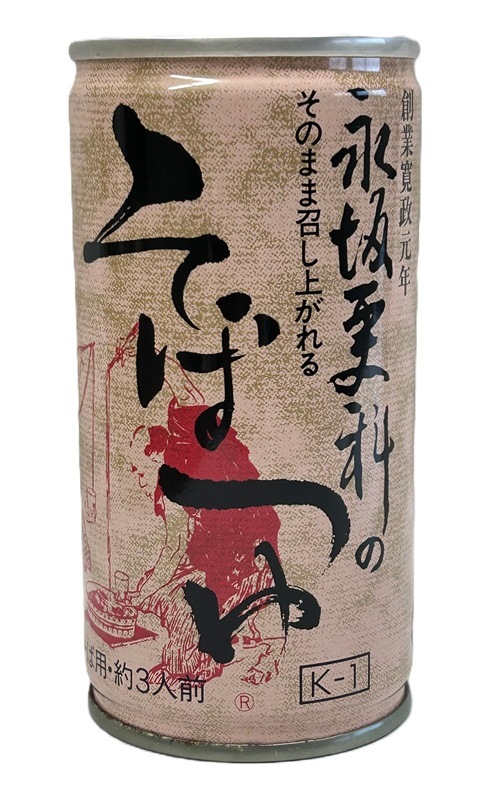 創業寛政元年
永坂更科の
そのまま召し上がれる
そばつゆ
ば用・約3人前
®
K-1